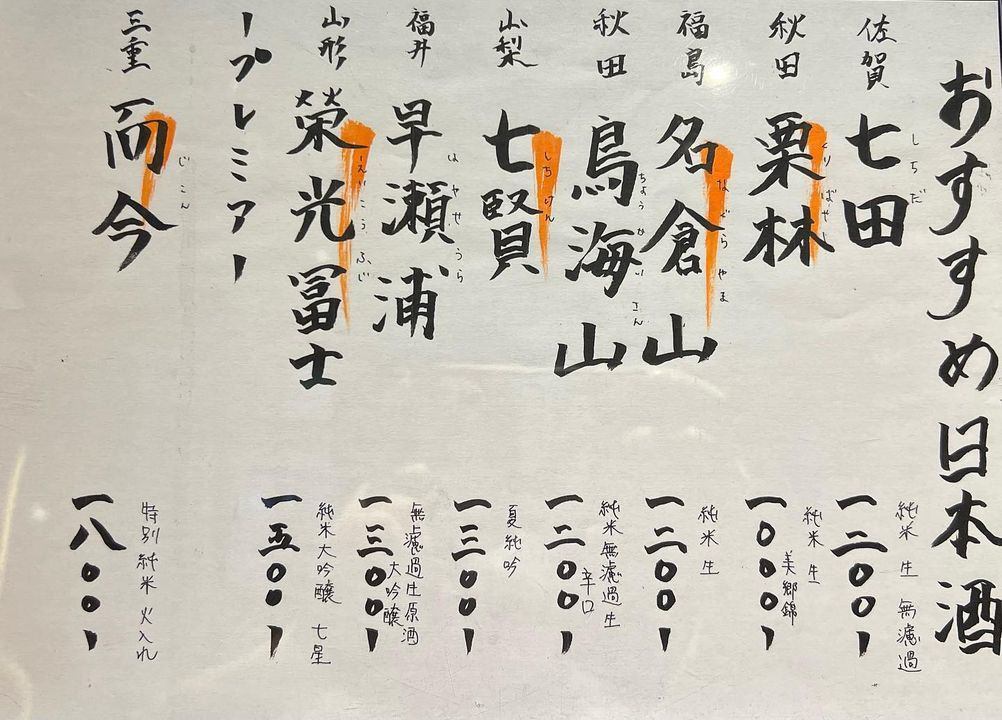 おすすめ日本酒
佐賀 七田 しちだ 純米 生 無濾過 一二〇〇ー
秋田 栗林 くりばやし 純米 生 美郷錦 一〇〇〇ー
福島 名倉山 なぐらやま 純米 生 一二〇〇ー
秋田 鳥海山 ちょうかいさん 純米無濾過生 辛口 一二〇〇ー
山梨 七賢 しちけん 夏純吟 一三〇〇ー
福井 早瀬浦 はやせうら 無濾過生原酒 大吟醸 一三〇〇ー
山形 榮光冨士 えいこうふじ 純米大吟醸 七星 一五〇〇ー
ープレミアー
三重 而今 じこん 特別純米 火入れ 一八〇〇ー